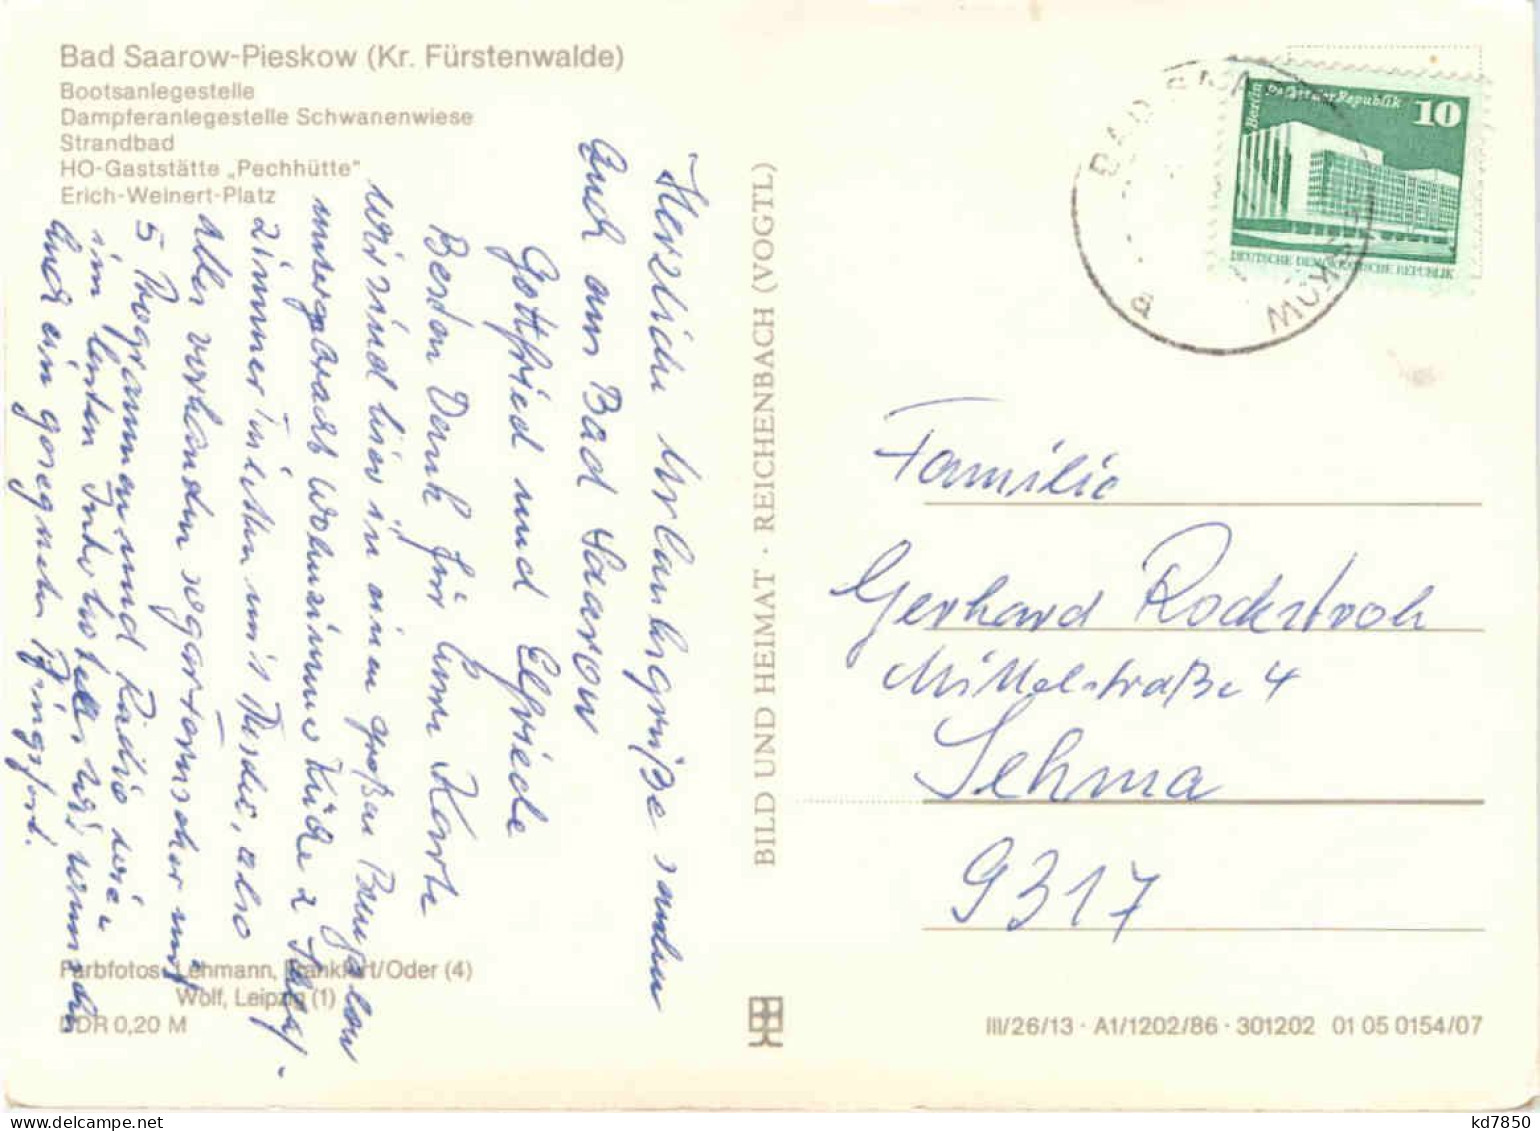 Bad Saarow-Pieskow (Kr. Fürstenwalde)
Bootsanlegestelle
Dampferanlegestelle Schwanenwiese
Strandbad
HO-Gaststätte „Pechhütte"
Erich-Weinert-Platz
Herzliche Urlaubsgrüße senden
Euch aus Bad Saarow
Gottfried und Elfriede
Besten Dank für Eure Karte
wir sind hier in einem großen Bungalow
untergebracht Wohnzimmer Küche 2 Schlaf-
zimmer
alles vorhanden sogar Fernseher mit
5 Programmen und Radio wie
im besten Interhotel. Wir wünschen
Euch ein gesegnetes Pfingstfest.
Farbfotos: Lehmann, Frankfurt/Oder (4)
Wolf, Leipzig (1)
DDR 0,20 M
BILD UND HEIMAT · REICHENBACH (VOGTL)
Berlin Palast der Republik 10
DEUTSCHE DEMOKRATISCHE REPUBLIK
BAD
a
Familie
Gerhard Rockstroh
Mittelstraße 4
Sehma
9317
III/26/13 · A1/1202/86 · 301202 01 05 0154/07
kd7850